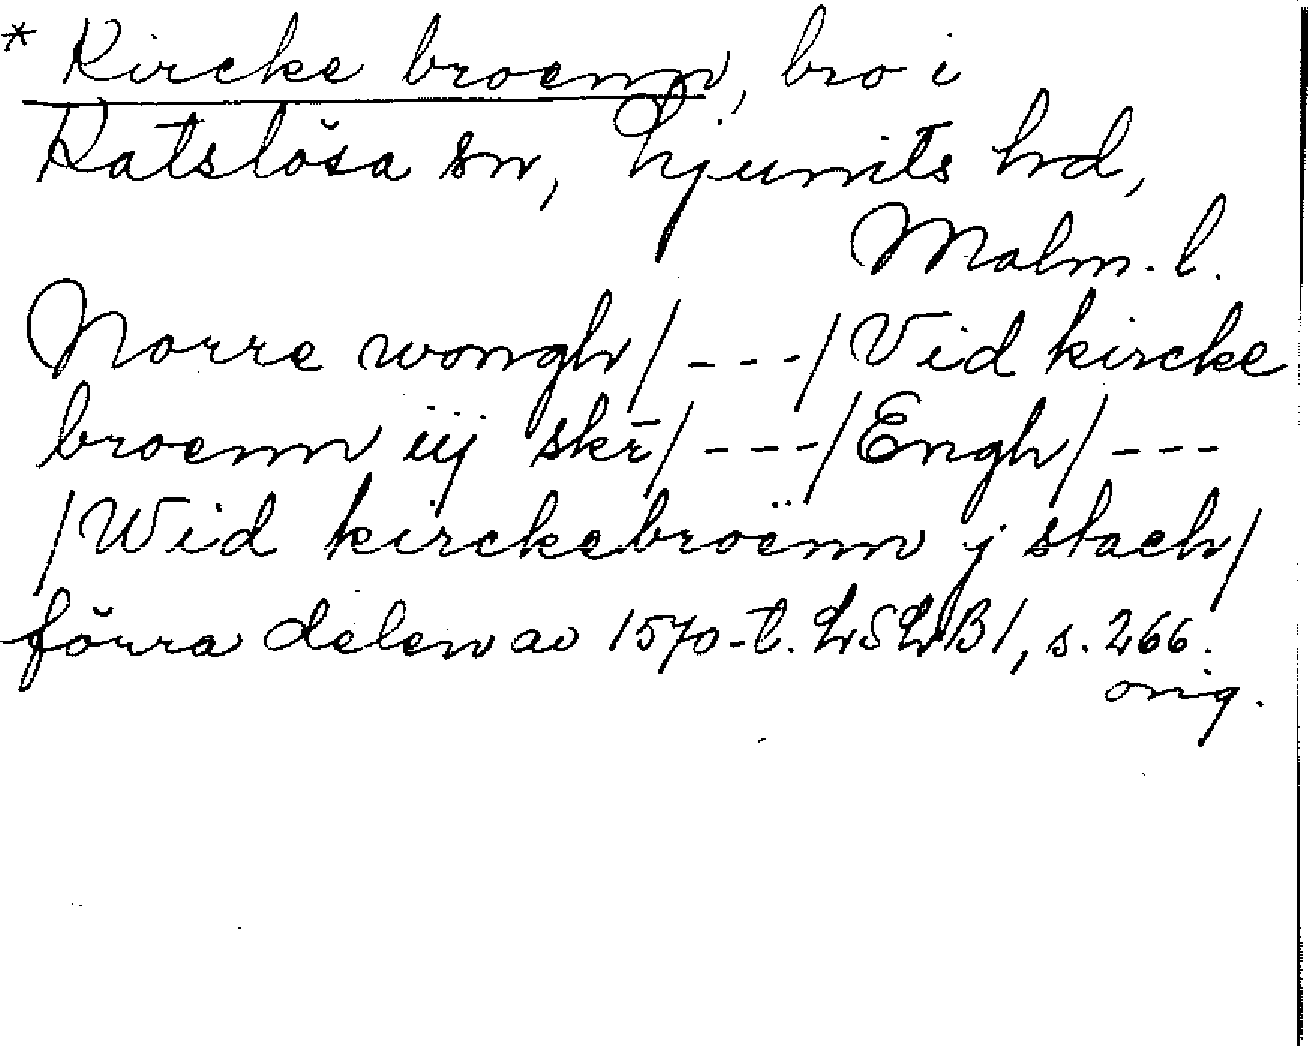 * Kircke broenn, bro i
Katslösa sn, Ljunits hd,
Malm. l.
Norre wongh/ - - - / Vid kircke
broenn iij skr̄/ - - - / Engh/ - - -
/ Wid kirckebroënn j stach/
förra delen av 1570-t. LSLB1, s. 266.
orig.